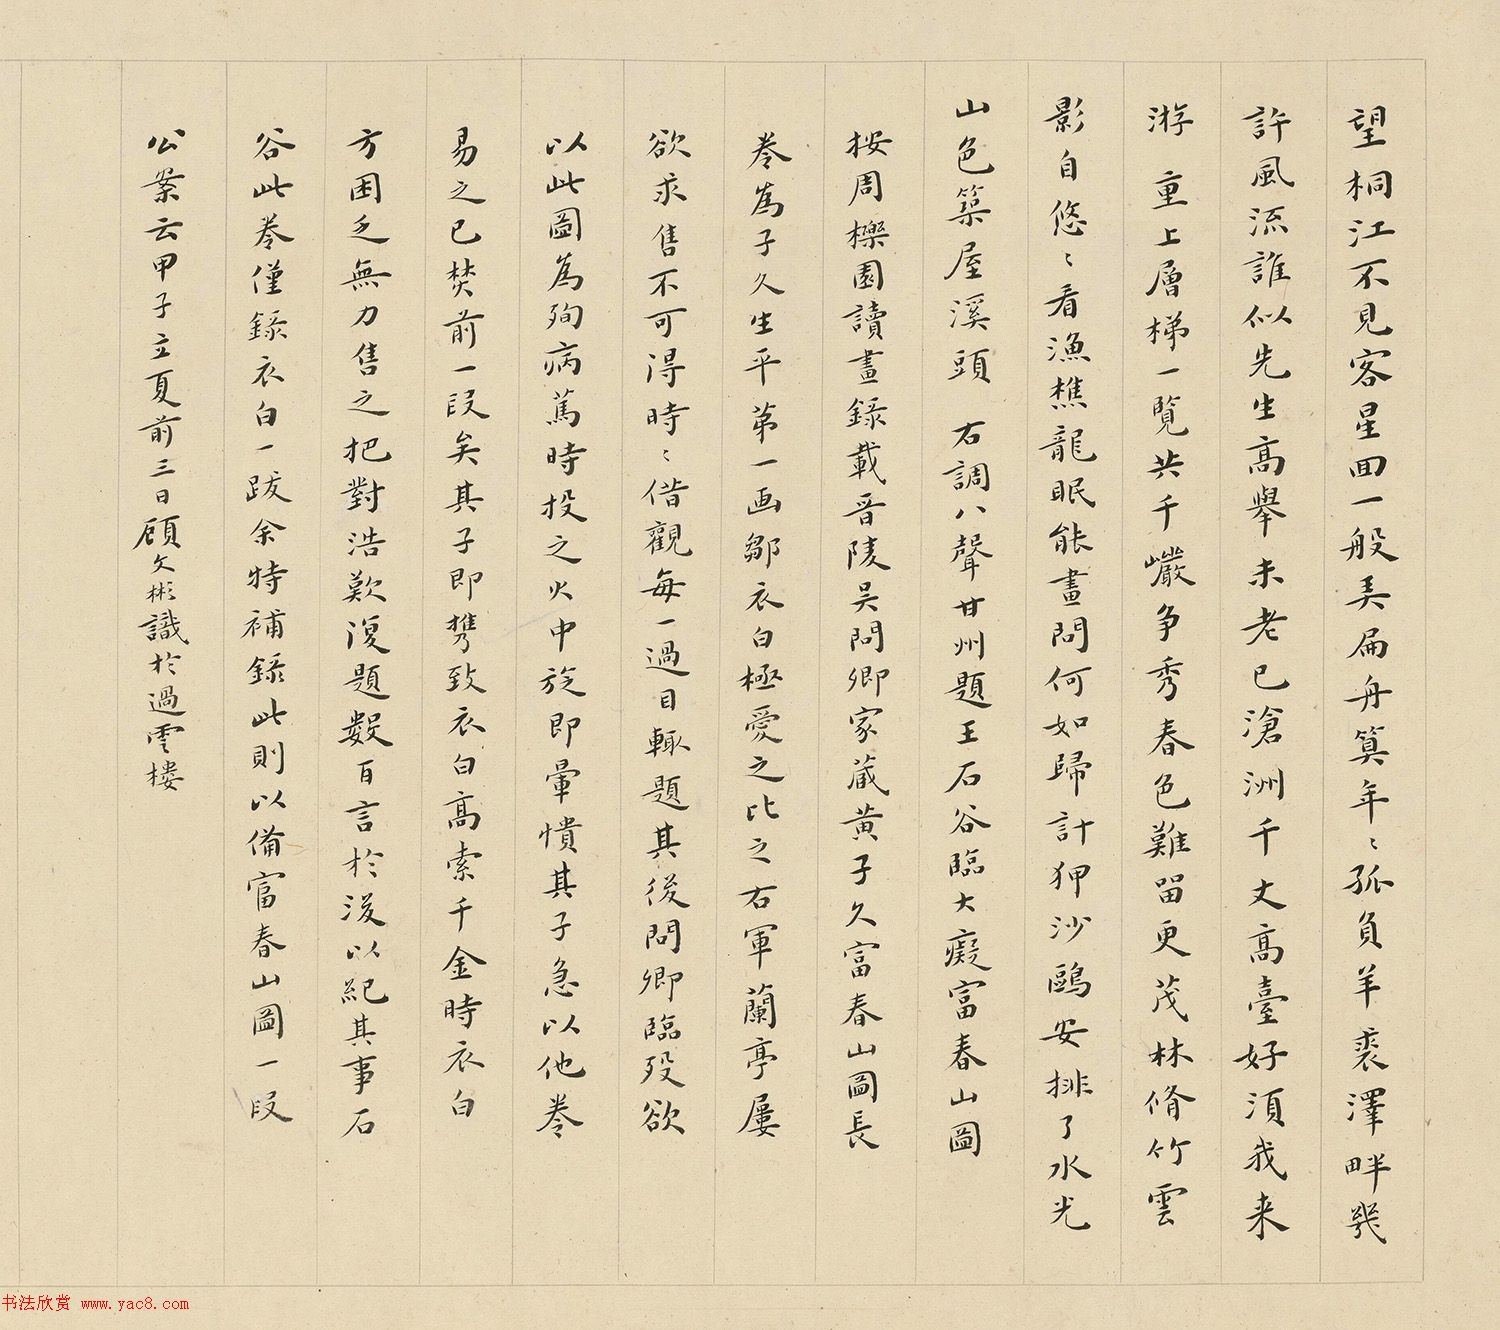 望桐江不見客星回一般弄扁舟算年〻孤負羊裘澤畔幾
許風流誰似先生高舉未老已滄洲千丈高臺好須我来
游 重上層梯一覽共千巖争秀春色難留更茂林脩竹雲
影自悠〻看漁樵龍眠能畫問何如歸計狎沙鷗安排了水光
山色築屋溪頭 右調八聲甘州題王石谷臨大癡富春山圖
按周櫟園讀畫錄載晋陵吴問卿家蔵黄子久富春山圖長
卷為子久生平第一画鄒衣白極愛之比之右軍蘭亭屢
欲求售不可得時〻借觀每一過目輒題其後問卿臨歿欲
以此圖為殉病篤時投之火中旋即暈憒其子急以他卷
易之已焚前一段矣其子即携致衣白高索千金時衣白
方困乏無力售之把對浩歎復題數百言於後以紀其事石
谷此卷僅錄衣白一跋余特補錄此則以備富春山圖一段
公案云甲子立夏前三日顧文彬識於過雲樓
书法欣赏 www.yac8.com